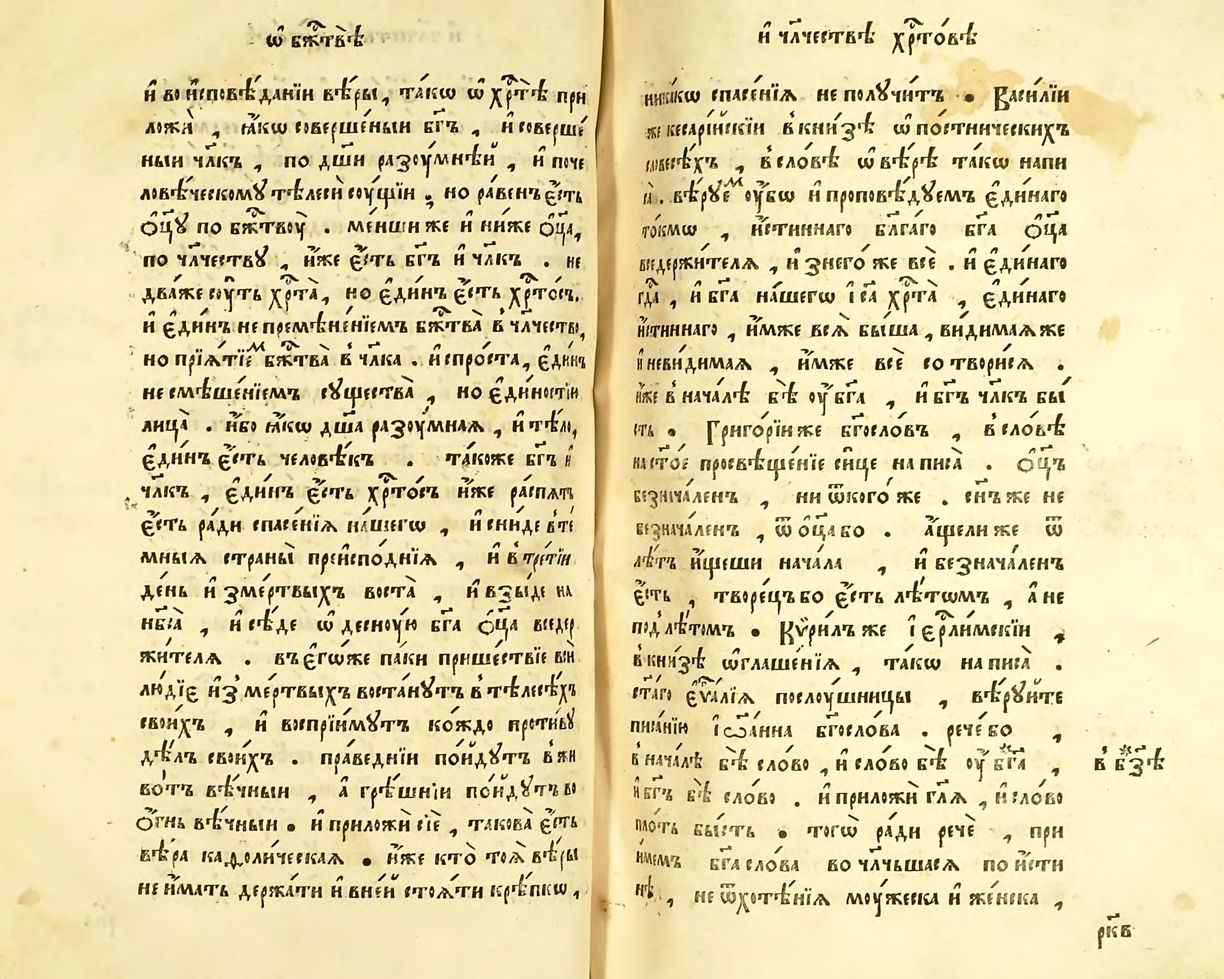 ѡ҆ бж҃твѣ̀
и҆ во и҆сповѣ́данїи вѣ́ры , та́кѡ ѡ҆ хр҃тѣ̀ при
ложѝ , ꙗ҆́кѡ соверше́ныи бг҃ъ , и҆ соверше́
ныи чл҃къ , по дш҃и разоу́мнѣй , и҆ по че
ловѣ́ческому тѣлесѝ соу́щїи , но ра́венъ є҆́сть
ѻ҆ц҃у по бж҃твоу̀ . ме́нши же и҆ ни́же ѻ҆ц҃а̀,
по чл҃честву̀ , и҆́же є҆́сть бг҃ъ и҆ чл҃къ . не
два́ же сꙋ́ть хр҃та̀, но є҆ди́нъ є҆́сть хр҃то́съ.
и҆ є҆ди́нъ не премѣне́нїемъ бж҃тва̀ в чл҃чество,
но прїѧ́тїем бж҃тва̀ в чл҃ка . и҆ спро́ста, є҆ди́нъ
не смѣше́нїемъ существа̀ , но є҆ди́ностїи
лица̀ . и҆́бо ꙗ҆́кѡ дш҃а разоу́мнаѧ , и҆ тѣ́ло,
є҆ди́нъ є҆́сть человѣ́къ . та́коже бг҃ъ и҆
чл҃къ , є҆ди́нъ є҆́сть хр҃то́съ и҆́же распѧ́тъ
є҆́сть ра́ди спасе́нїѧ на́шегѡ , и҆ сни́де в те́
мныѧ страны̀ преи҆спо́днїѧ , и҆ в тре́тїи
де́нь и҆ з ме́ртвыхъ воста̀ , и҆ взы́де на
нб҃са̀ , и҆ сѣ́де ѡ҆ десноу́ю бг҃а ѻ҆ц҃а̀ вседер
жи́телѧ . въ є҆го́же па́ки прише́ствїе вси̑
лю́дїе и҆з ме́ртвыхъ воста́нутъ в тѣлесѣ́хъ
свои́хъ , и҆ воспрїи́мутъ ко́ждо проти́ву
дѣ́лъ свои́хъ . пра́веднїи по́йдутъ в жи
во́тъ вѣ́чныи , а҆ грѣ́шнїи по́йдутъ во
ѻ҆́гнь вѣ́чныи . и҆ приложѝ сїѐ , такова̀ є҆́сть
вѣ́ра каѳоли́ческаѧ . и҆́же кто̀ тоѧ̀ вѣ́ры
не и҆́мать держа́ти и҆ в не́й стоѧ́ти крѣ́пкѡ ,
и҆ чл҃чествѣ хр҃то́вѣ
ника́кѡ спасе́нїѧ не полу́читъ . Васи́лїи
же кесарі́йскїи в кни́зѣ ѡ҆ по́стническихъ
словесѣ́хъ , в сло́вѣ ѡ҆ вѣ́рѣ та́кѡ напи
са̀ . вѣ́руем оу҆́бѡ и҆ проповѣ́дуемъ є҆ди́наго
то́кмѡ , и҆́стиннаго бл҃га́го бг҃а ѻ҆ц҃а̀
вседержи́телѧ , и҆ з него́же всѐ . и҆ є҆ди́наго
гд҃а , и҆ бг҃а на́шегѡ і҆с҃а хр҃та̀ , є҆ди́наго
и҆́стиннаго , и҆́мже всѧ̀ бы́ша , ви́димаѧ же
и҆ неви́димаѧ , и҆́мже всѐ сотвори́сѧ .
и҆́же в нача́лѣ бѣ̀ оу҆ бг҃а , и҆ бг҃ъ чл҃къ бы́
сть . Григо́рїи же бг҃осло́въ , в сло́вѣ
на ст҃о́е просвѣще́нїе си́це написа̀ . ѻ҆ц҃ъ
безнача́ленъ , ни ѿ кого́же . сн҃ъ же не
безнача́ленъ , ѿ ѻ҆ц҃а бо . а҆́ще ли же ѿ
лѣ́тъ и҆́щеши нача́ла , и҆ безнача́ленъ
є҆́сть , творе́цъ бо є҆́сть лѣ́томъ , а҆ не
под лѣ́томъ . Кѷри́лъ же і҆ер҃ли́мскїи ,
в кни́зѣ ѡ҆глаше́нїѧ , та́кѡ написа̀ .
ст҃а́го є҆ѵ҃а́лїѧ послоу́шницы , вѣ́руйте
писа́нїю і҆ѡа́нна бг҃осло́ва . рече́ бо ,
в нача́лѣ бѣ̀ сло́во , и҆ сло́во бѣ̀ оу҆ бг҃а ,
в бз҃ѣ
и҆ бг҃ъ бѣ̀ сло́во . и҆ приложѝ гл҃ѧ , и҆ сло́во
пло́ть бы́сть . тогѡ̀ ра́ди речѐ , при
и҆́мемъ бг҃а сло́ва вочл҃чьшасѧ по и҆́сти
нѣ , не ѿ хотѣ́нїѧ моу́жеска и҆ же́нска ,
рк҃в